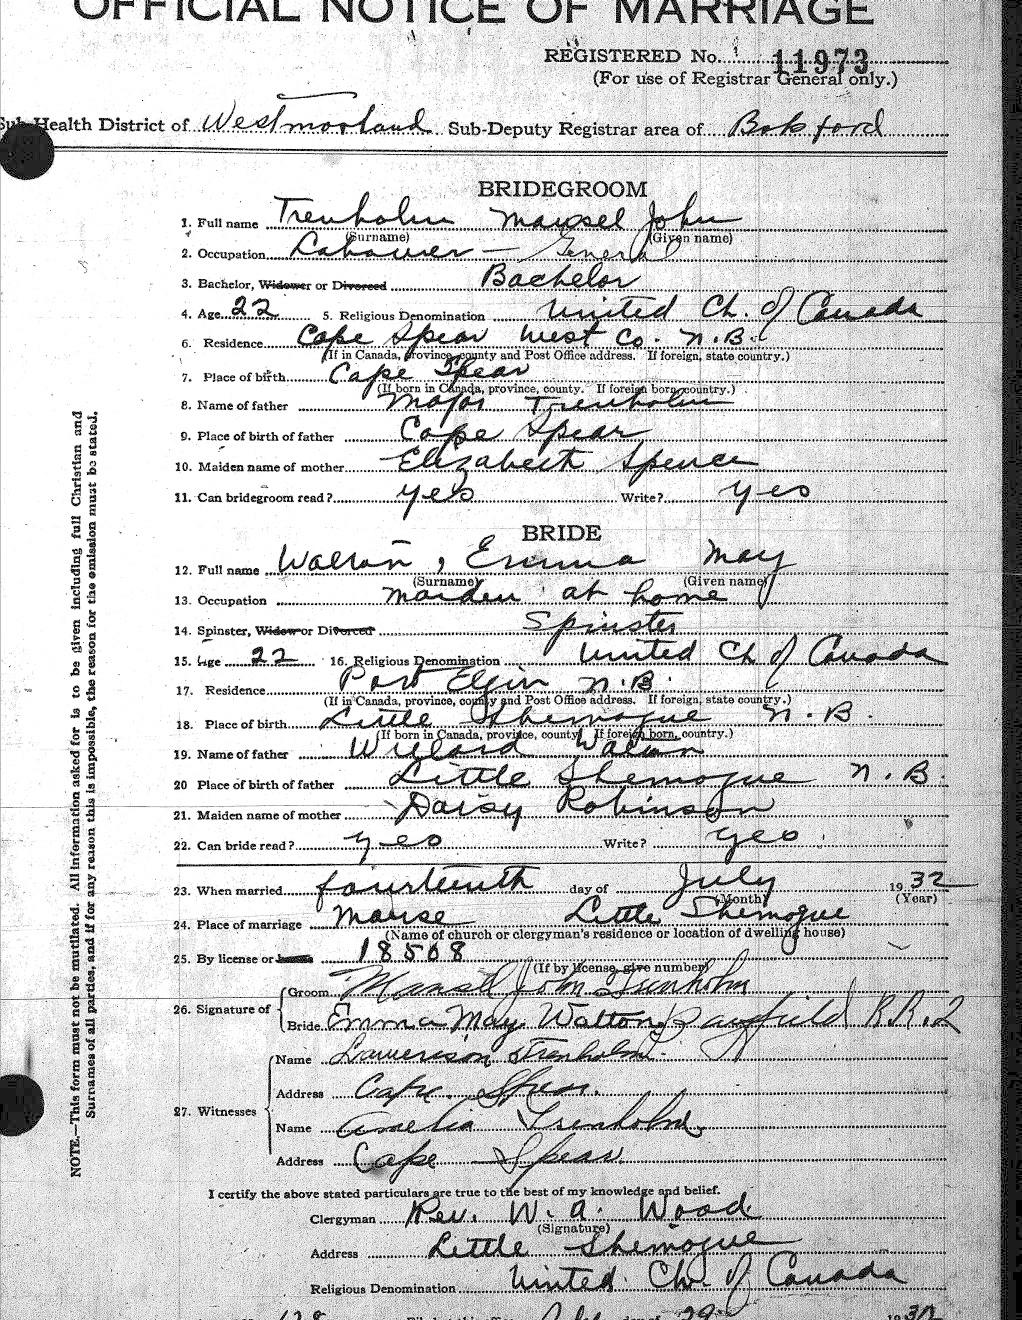 OFFICIAL NOTICE OF MARRIAGE
REGISTERED No. 11973
(For use of Registrar General only.)
Sub-Health District of Westmorland Sub-Deputy Registrar area of Botsford
BRIDEGROOM
1. Full name Trenholm Mansel John
(Surname) (Given name)
2. Occupation Labourer - General
3. Bachelor, Widower or Divorced Bachelor
4. Age 22 5. Religious Denomination United Ch. of Canada
6. Residence Cape Spear West Co. N.B.
(If in Canada, province, county and Post Office address. If foreign, state country.)
7. Place of birth Cape Spear
(If born in Canada, province, county. If foreign born, country.)
8. Name of father Major Trenholm
9. Place of birth of father Cape Spear
10. Maiden name of mother Elizabeth Spence
11. Can bridegroom read? yes Write? yes
BRIDE
12. Full name Walton, Emma May
(Surname) (Given name)
13. Occupation maiden at home
14. Spinster, Widow or Divorced Spinster
15. Age 22 16. Religious Denomination United Ch of Canada
17. Residence Port Elgin N.B.
(If in Canada, province, county and Post Office address. If foreign, state country.)
18. Place of birth Little Shemogue N.B.
(If born in Canada, province, county. If foreign born, country.)
19. Name of father Willard Walton
20 Place of birth of father Little Shemogue N.B.
21. Maiden name of mother Daisy Robinson
22. Can bride read? yes Write? yes
23. When married fourteenth day of July 1932
(Month) (Year)
24. Place of marriage Manse Little Shemogue
(Name of church or clergyman's residence or location of dwelling house)
25. By license or 18508
(If by license, give number)
26. Signature of
Groom Mansel John Trenholm
Bride Emma May Walton, Bayfield R.R.2
27. Witnesses
Name Trenholm
Address Cape Spear.
Name Amelia Trenholm
Address Cape Spear
I certify the above stated particulars are true to the best of my knowledge and belief.
Clergyman Rev. W. A. Wood
(Signature)
Address Little Shemogue
Religious Denomination United Ch. of Canada
NOTE.—This form must not be mutilated. All information asked for is to be given including full Christian and
Surnames of all parties, and if for any reason this is impossible, the reason for the omission must be stated.